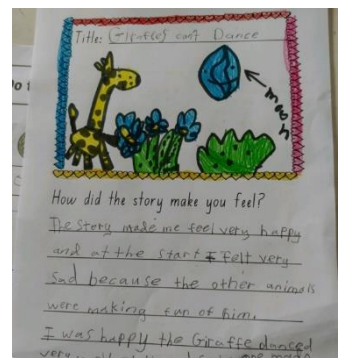 Title: Giraffes can't Dance
moon
How did the story make you feel?
The story made me feel very happy
and at the start I felt very
sad because the other animals
were making fun of him.
I was happy the Giraffe danced
very